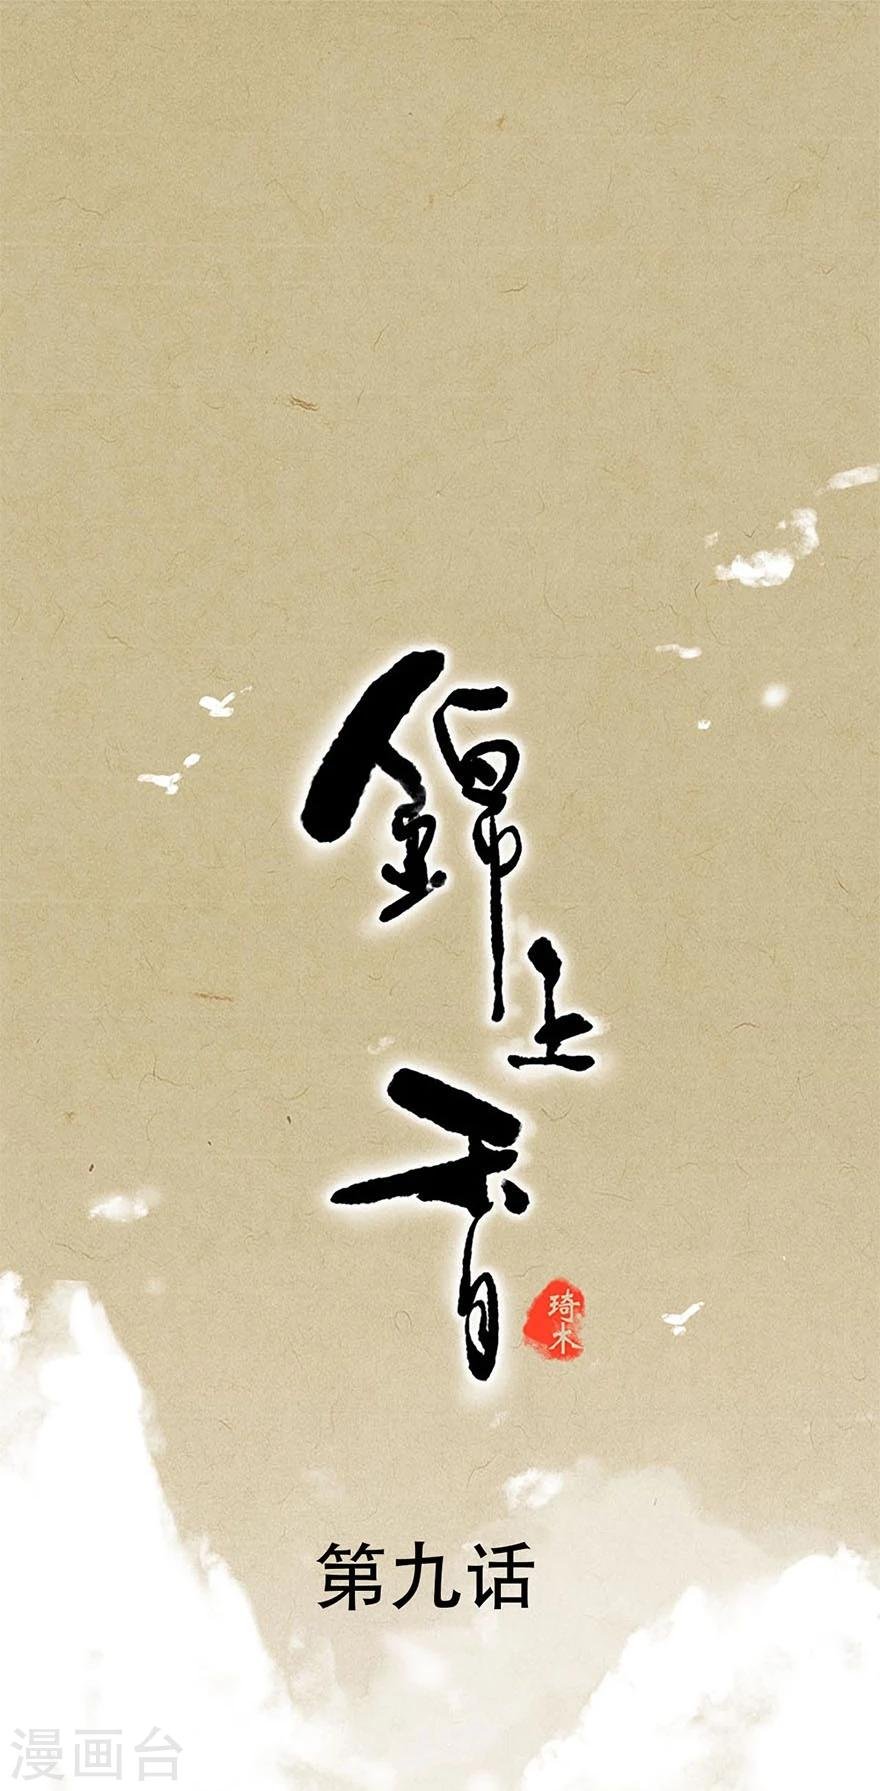 錦上香
琦木
第九话
漫画台